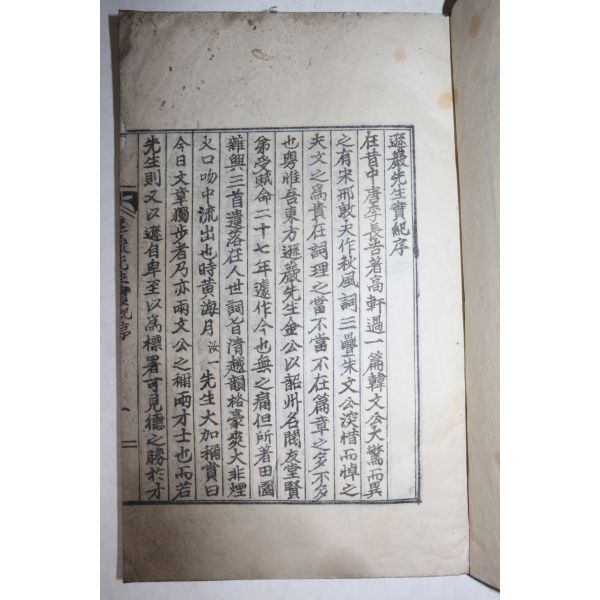 遯巖先生實紀序
在昔中唐李長吉著高軒過一篇韓文公大驚而異
之有宋邢敦夫作秋風詞三疊朱文公深惜而悼之
夫文之爲貴在詞理之當不當不在篇章之多不多
也粤惟吾東方遯巖先生金公以韶州名閥友堂賢
弟受賦命二十七年遽作今也無之痛但所著田園
雜興三首遺落在人世詞旨清越韻格豪爽大非煙
火口吻中流出也時黃海月汝一先生大加稱賞曰
今日文章獨步者乃亦兩文公之稱兩才士也而若
先生則又以遯自卑至以爲標署可見德之勝於才
遯巖先生實紀序 一